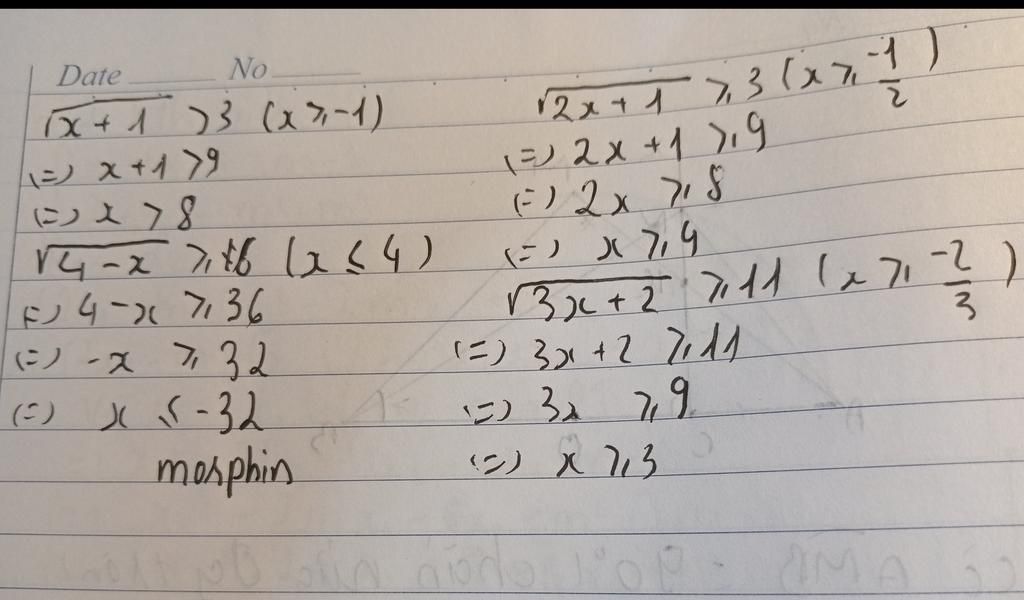 Date No
√(x + 1) > 3 (x ⩾ -1)
(=) x + 1 > 9
(=) x > 8
√(4 - x) ⩾ 6 (x ⩽ 4)
(=) 4 - x ⩾ 36
(=) -x ⩾ 32
(=) x ⩽ -32
morphin
√(2x + 1) ⩾ 3 (x ⩾ -1/2)
(=) 2x + 1 ⩾ 9
(=) 2x ⩾ 8
(=) x ⩾ 4
√(3x + 2) ⩾ 11 (x ⩾ -2/3)
(=) 3x + 2 ⩾ 11
(=) 3x ⩾ 9
(=) x ⩾ 3